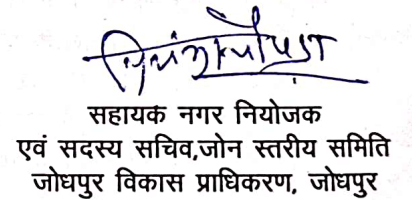 सहायक नगर नियोजक
एवं सदस्य सचिव,जोन स्तरीय समिति
जोधपुर विकास प्राधिकरण, जोधपुर